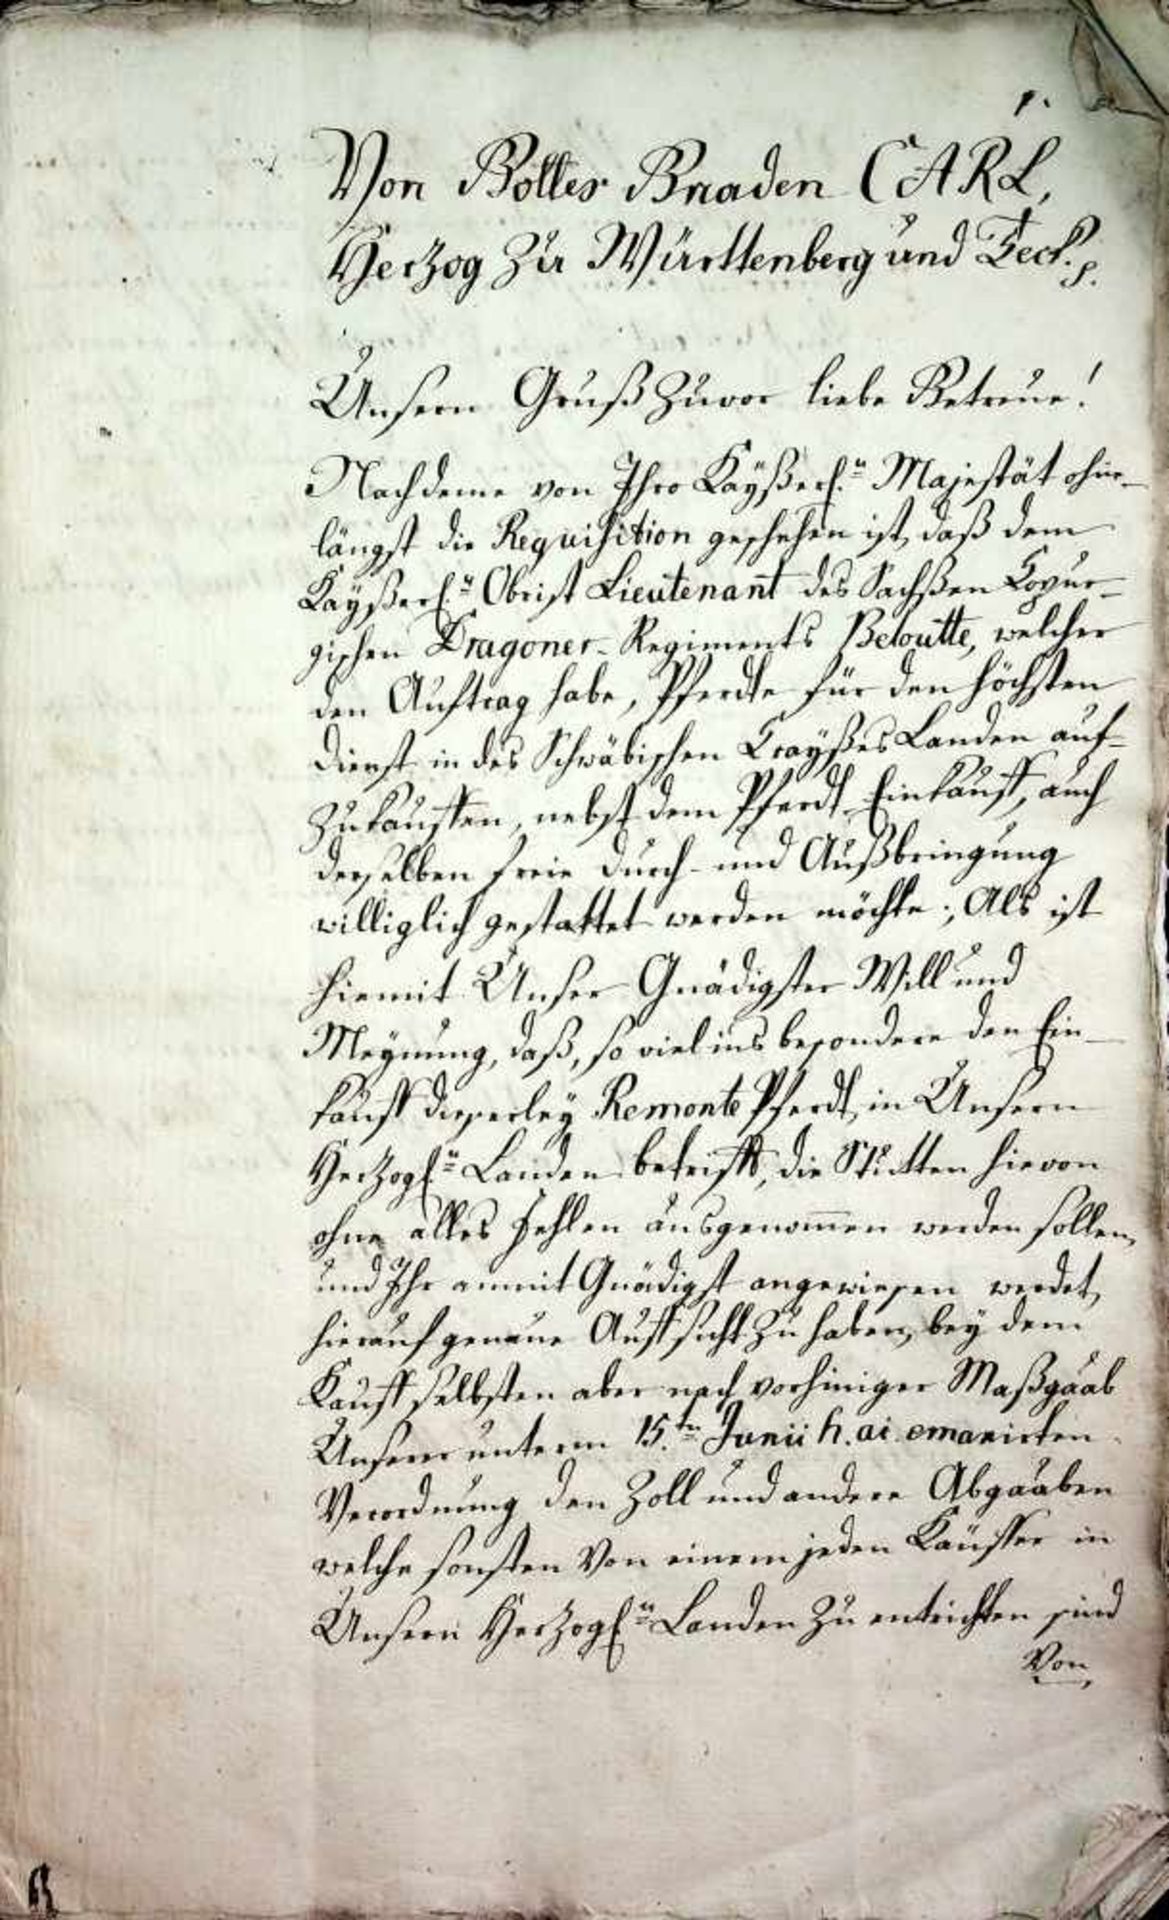 1.
Von Gottes Gnaden CARL,
Herzog Zu Württenberg und Teck p.
Unsern Gruß Zuvor liebe Getreue!
Nachdeme von Ihro Kayßerl.n Majestät ohn-
längst die Requisition geschehen ist, daß dem
Kayßerl.n Obrist Lieutenant des Sachßen Coxur-
gischen Dragoner-Regiments Beloutte, welcher
den Auftrag habe, Pferdte für den höchsten
Dienst in des Schwäbischen Crayßes Landen auf-
Zukauffen, nebst dem Pferdt Einkauff, auch
derselben freie Durch- und Außbringung
williglich gestattet werden möchte; Als ist
hiemit Unser Gnädigster Will und
Meynung, daß, so viel ins besondere den Ein-
kauff dieserley Remonte Pferdt in Unsern
Herzogl.n Landen betrifft, die Stutten hievon
ohne alles Fehlen ausgenom̄en werden sollen,
und Ihr anmit Gnädigst angewiesen werdet,
hierauf genaue Auffsicht Zu haben, bey dem
Kauff selbsten aber nach vorhiniger Maßgaab
Unserer unterm 15.ten Junii h. ai. emanirten
Verordnung den Zoll und andere Abgaaben
welche sonsten Von einem jeden Käuffer in
Unsern Herzogl.n Landen Zu entrichten sind
Von